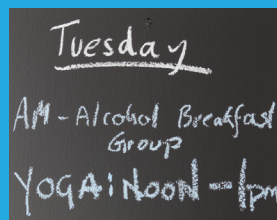 Tuesday
AM - Alcohol Breakfast
Group
YOGA: NOON - 1pm